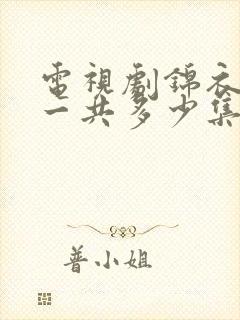 電視劇錦衣
一共多少集
普小姐